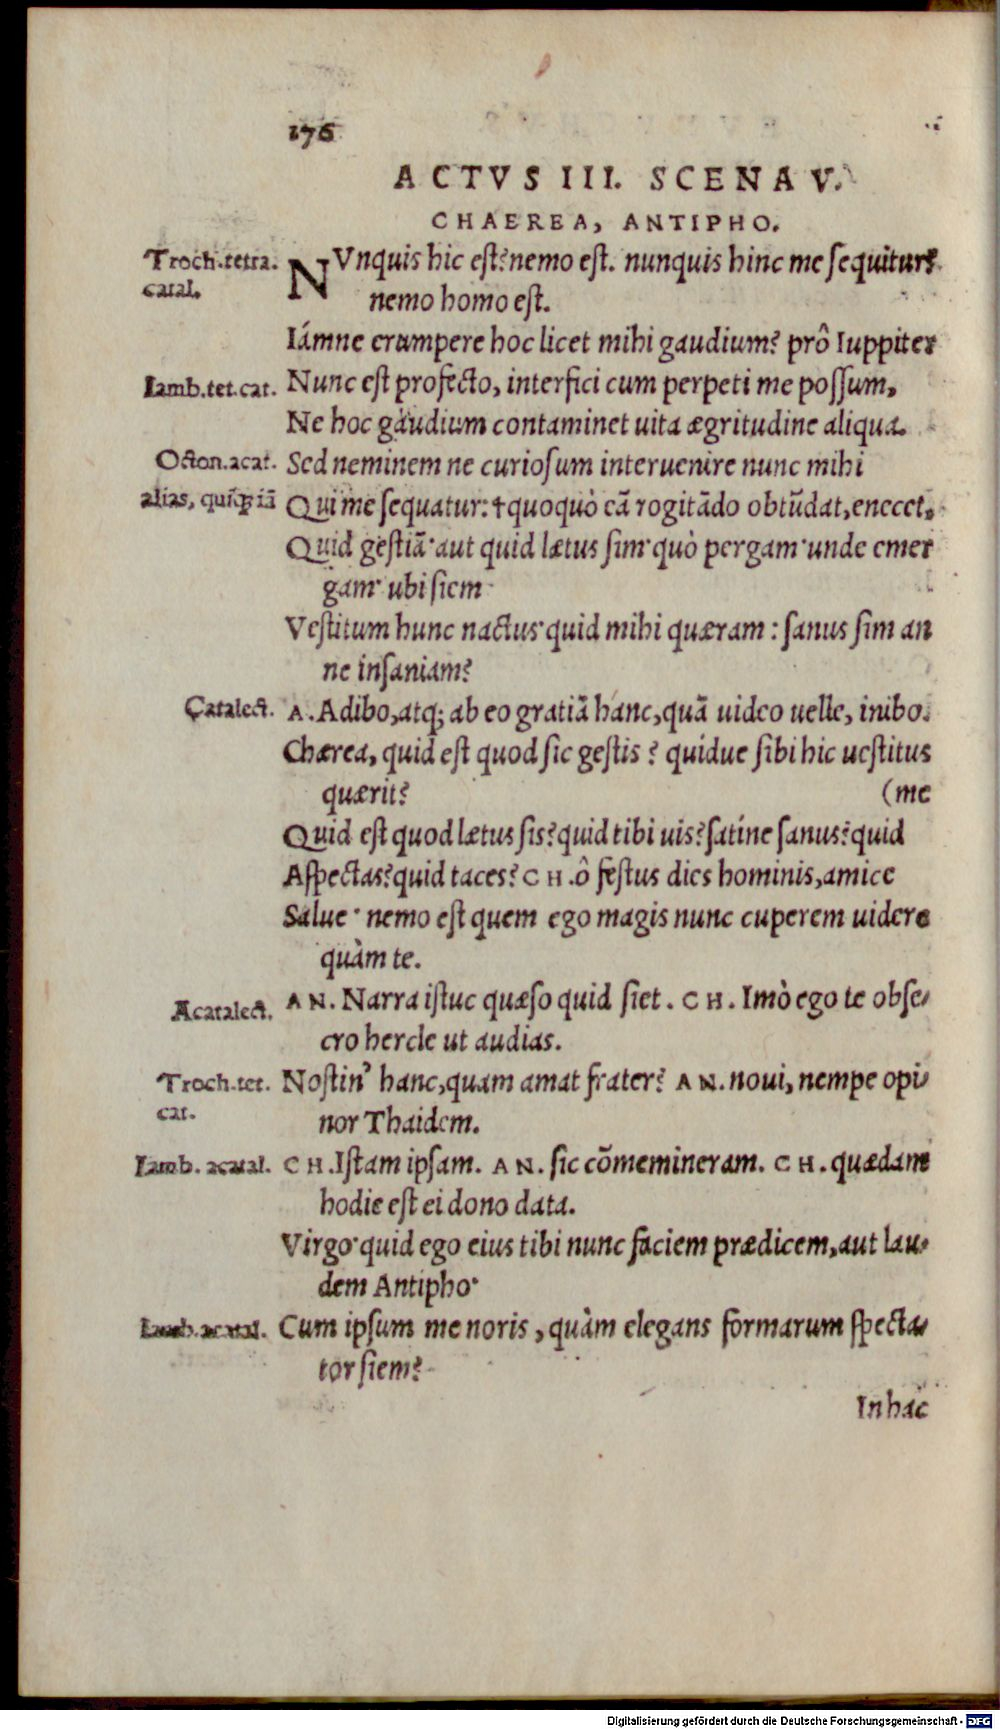 176
ACTVS III. SCENA V.
CHAEREA, ANTIPHO.
Troch. tetra.
catal.
NVnquis hic est? nemo est. nunquis hinc me sequitur?
nemo homo est.
Iámne erumpere hoc licet mihi gaudium? prô Iuppiter
Iamb. tet. cat.
Nunc est profecto, interfici cum perpeti me possum,
Ne hoc gaudium contaminet uita ægritudine aliqua.
Octon. acat.
Sed neminem ne curiosum interuenire nunc mihi
alias, quiq̃ iã
Qui me sequatur: † quoquò eã rogitãdo obtũdat, enecet,
Quid gestiã· aut quid lætus sim· quò pergam· unde emer
gam· ubi siem·
Vestitum hunc nactus· quid mihi quæram: sanus sim an
ne insaniam?
Catalect.
A. Adibo, atq; ab eo gratiã hánc, quã uideo uelle, inibo.
Chærea, quid est quod sic gestis? quidue sibi hic uestitus
quærit?
(me
Quid est quod lætus sis? quid tibi uis? satíne sanus? quid
Aspectas? quid taces? CH. ô festus dies hominis, amice
Salue· nemo est quem ego magis nunc cuperem uidere
quàm te.
Acatalect.
AN. Narra istuc quæso quid siet. CH. Imò ego te obse-
cro hercle ut audias.
Troch. tet.
cat.
Nostin' hanc, quam amat frater? AN. noui, nempe opi-
nor Thaidem.
Iamb. acatal.
CH. Istam ipsam. AN. sic cõmemineram. CH. quædam
hodie est ei dono data.
Virgo· quid ego eius tibi nunc faciem prædicem, aut lau-
dem Antipho·
Iamb. acatal.
Cum ipsum me noris, quàm elegans formarum specta-
tor siem?
In hac
Digitalisierung gefördert durch die Deutsche Forschungsgemeinschaft - DFG